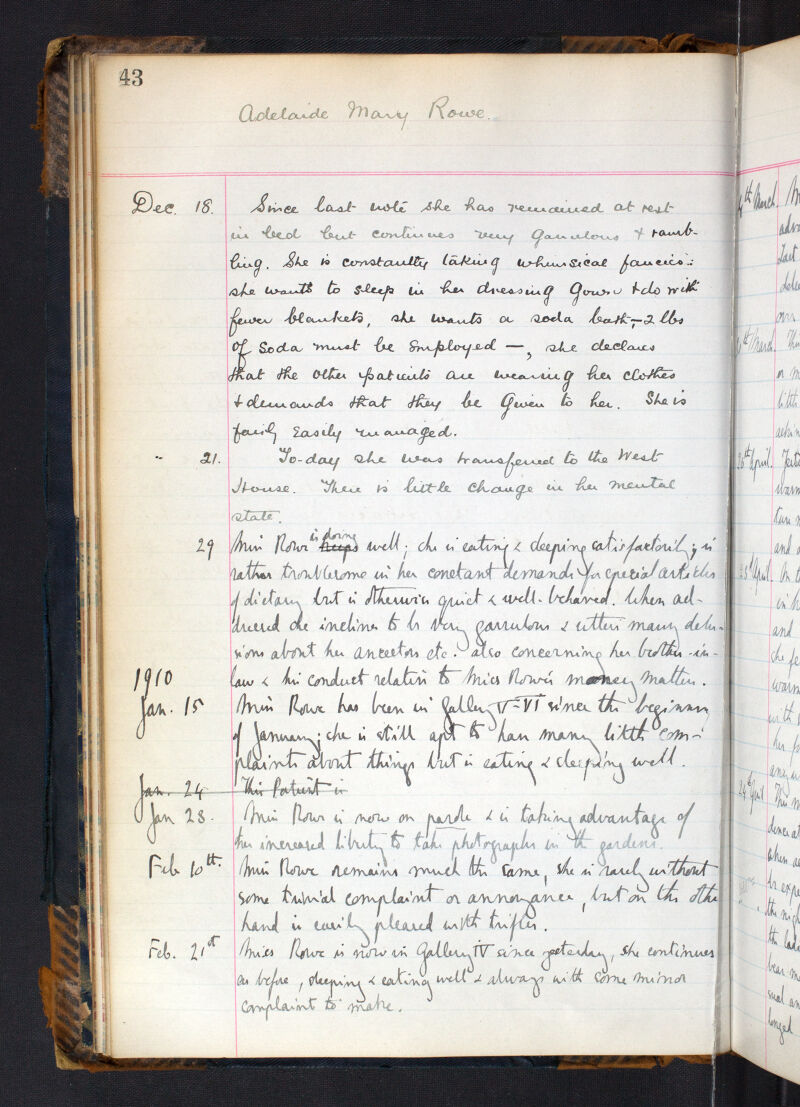 43
Adelaide Mary Rowe.
Dec. 18. Since last note she has remained at rest
in bed but continues very garrulous & ramb-
ling. She is constantly taking whimsical fancies:
she wants to sleep in her dressing gown & do with
fewer blankets, she wants a soda bath, – 2 lbs
of soda must be employed –, she declares
that the other patients are wearing her clothes
& demands that they be given to her. She is
fairly easily managed.
" 21. To-day she was transferred to the West
House. There is little change in her mental
state.
29 Miss Rowe is doing keeps well; she is eating & sleeping satisfactorily; is
rather troublesome in her constant demands for special articles
of dietary but is otherwise quiet & well-behaved. When ad-
dressed she inclines to be very garrulous & utters many delu-
sions about her ancestors etc. also concerning her brother-in-
law & his conduct relative to Miss Rowe's money matters.
1910
Jan. 15 Miss Rowe has been in Gallery V-VI since the beginning
of January; she is still apt to have many little com-
plaints about things but is eating & sleeping well.
Jan. 24 This Patient is
Jan 28. Miss Rowe is now on parole & is taking advantage of
her increased liberty to take photographs in the gardens.
Feb 10th. Miss Rowe remains much the same, she is rarely without
some trivial complaint or annoyance, but on the other
hand is easily pleased with trifles.
Feb. 21st Miss Rowe is now in Gallery IV since yesterday, she continues
as before, sleeping & eating well & always with some minor
complaint to make.